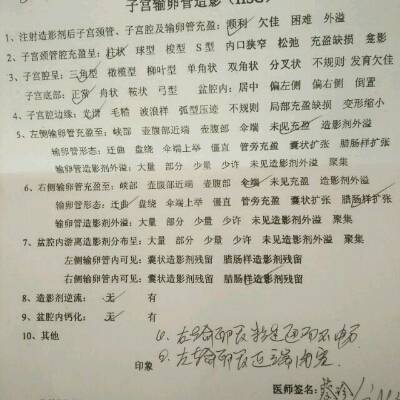 子宫输卵管造影（HSG）
1、注射造影剂后子宫颈管、子宫腔及输卵管充盈：顺利 欠佳 困难 外溢
2、子宫颈管腔充盈呈：柱状 球型 梭型 S型 内口狭窄 松弛 充盈缺损 龛影
3、子宫腔呈：三角型 橄榄型 柳叶型 单角状 双角状 分叉状 不规则 发育欠佳
子宫底部：正常 弗状 鞍状 弓型 盆腔内：居中 偏左侧 偏右侧 倒置
4、子宫腔边缘：光滑 毛糙 波浪样 弧型压迹 不规则 局部充盈缺损 变形缩小
5、左侧输卵管充盈至：峡部 壶腹部近端 壶腹部 伞端 未见充盈 造影剂外溢
输卵管形态：迂曲 盘绕 伞端上举 僵直 管旁充盈 囊状扩张 腊肠样扩张
输卵管造影剂外溢：大量 部分 少量 少许 未见造影剂外溢 聚集
6、右侧输卵管充盈至：峡部 壶腹部近端 壶腹部 伞端 未见充盈 造影剂外溢
输卵管形态：迂曲 盘绕 伞端上举 僵直 管旁充盈 囊状扩张 腊肠样扩张
输卵管造影剂外溢：大量 部分 少量 少许 未见造影剂外溢 聚集
7、盆腔内游离造影剂分布呈：大量 部分 少量 少许 未见造影剂外溢 聚集
左侧输卵管内可见：囊状造影剂残留 腊肠样造影剂残留
右侧输卵管内可见：囊状造影剂残留 腊肠样造影剂残留
8、造影剂逆流：无 有
9、盆腔内钙化：无 有
10、其他
印象
医师签名：